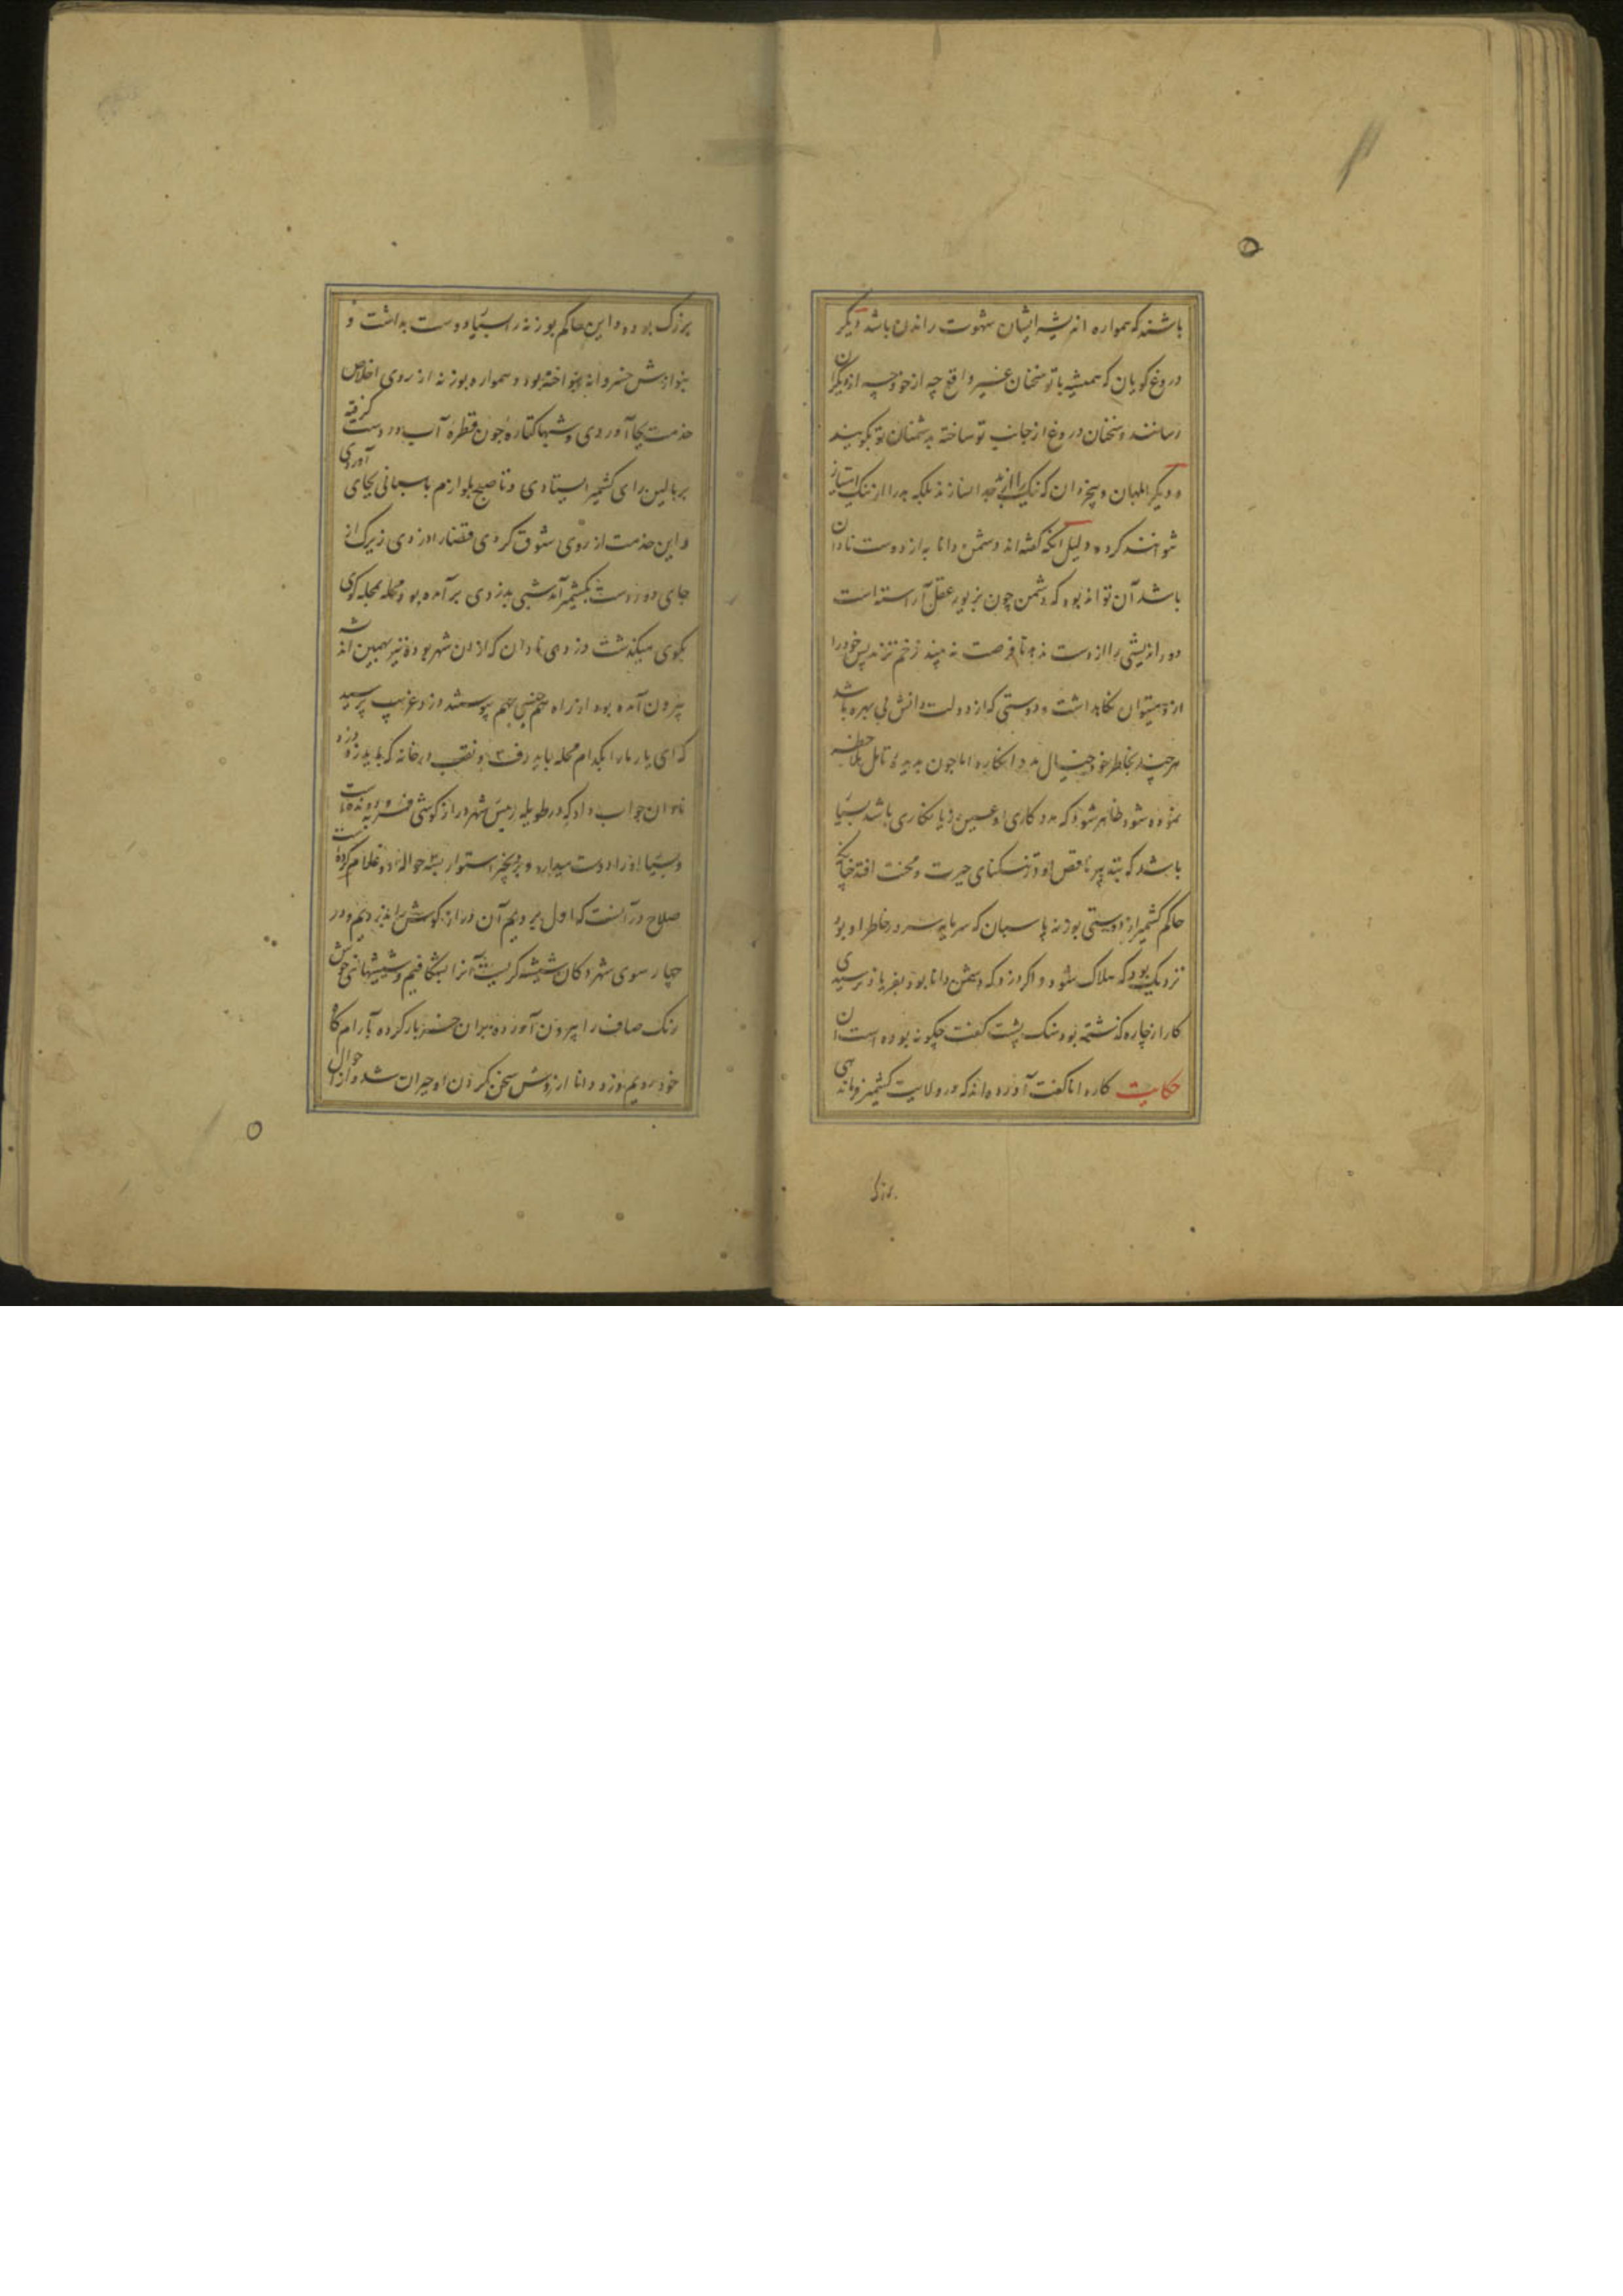 باشند که همواره اندیشه ایشان شهوت راندن باشد دیگر
دروغ گویان که همیشه با تو سخنان غیر واقع چه از خود چه از دیگران
رسانند و سخنان دروغ از جانب تو ساخته بدشمنان تو بگویند
و دیگر ابلهان و بیخردان که نیک را از بد جدا نسازند بلکه بد را از نیک امتیاز
نتوانند کرد و دلیل آنکه گفته اند دشمن دانا به از دوست نادان
باشد آن تواند بود که دشمن چون بزیور عقل آراسته است
دور اندیشی را از دست ندهد تا فرصت نه بیند زخم نزند پس خود را
ازو میتوان نگاه داشت و دوستی که از دولت دانش بی بهره باشد
هر چند بخاطر خود خیال مدد انگارد اما چون بدیده تامل ملاحظه
نموده شود ظاهر شود که مدد کاری او عین زیانکاری باشد بسیار
باشد که بتدبیر ناقص او در تنگنای حیرت و محنت افتد چنانکه
حاکم کشمیر از دوستی بوزنه پاسبان که سرمایه سرور خاطر او بود
نزدیک بود که هلاک شود و اگر دزد که دشمن دانا بود بفریاد نرسیدی
کار از چاره گذشته بود سنگ پشت گفت چگونه بوده است آن
حکایت کاردانا گفت آورده اند که در ولایت کشمیر فرماندهی
بزرگ بوده و این حاکم بوزنه را بسیار دوست بداشت و
بنوازش خسروانه بنواخته بود و همواره بوزنه از روی اخلاص
خدمت بجا آوردی و شبها کتاره چون قطره آب در دست گرفته
بر بالین رای کشمیر ایستادی و تا صبح بلوازم پاسبانی بجای آوردی
و این خدمت از روی شوق کردی قضا را دزدی زیرک از
جای دور دست بکشمیر آمد شبی بدزدی برآمده بود و محله بمحله کوی
بکوی میگذشت دزدی نادان که از ان شهر بود نیز بهمین اندیشه
بیرون آمده بود از راه هم جنسی بهم پیوستند دزد غریب پرسید
که ای یار ما را بکدام محله باید رفت و نقب در خانه که باید زد دزد
نادان جواب داد که در طویله رئیس شهر دراز گوشی فربه و رونده است
و بسیار او را دوست میدارد و بزنجیر استوار بسته حواله دو غلام کرده است
صلاح در آنست که اول برویم آن دراز گوش را بدزدیم و در
چهار سوی شهر دکان شیشه گریست آنرا بشگافیم و شیشهای خوش
رنگ صاف را بیرون آورده بران خر بار کرده بآرامگاه
خود رویم دزد دانا ازروش سخن کردن او حیران شد و از احوال
بزرگ